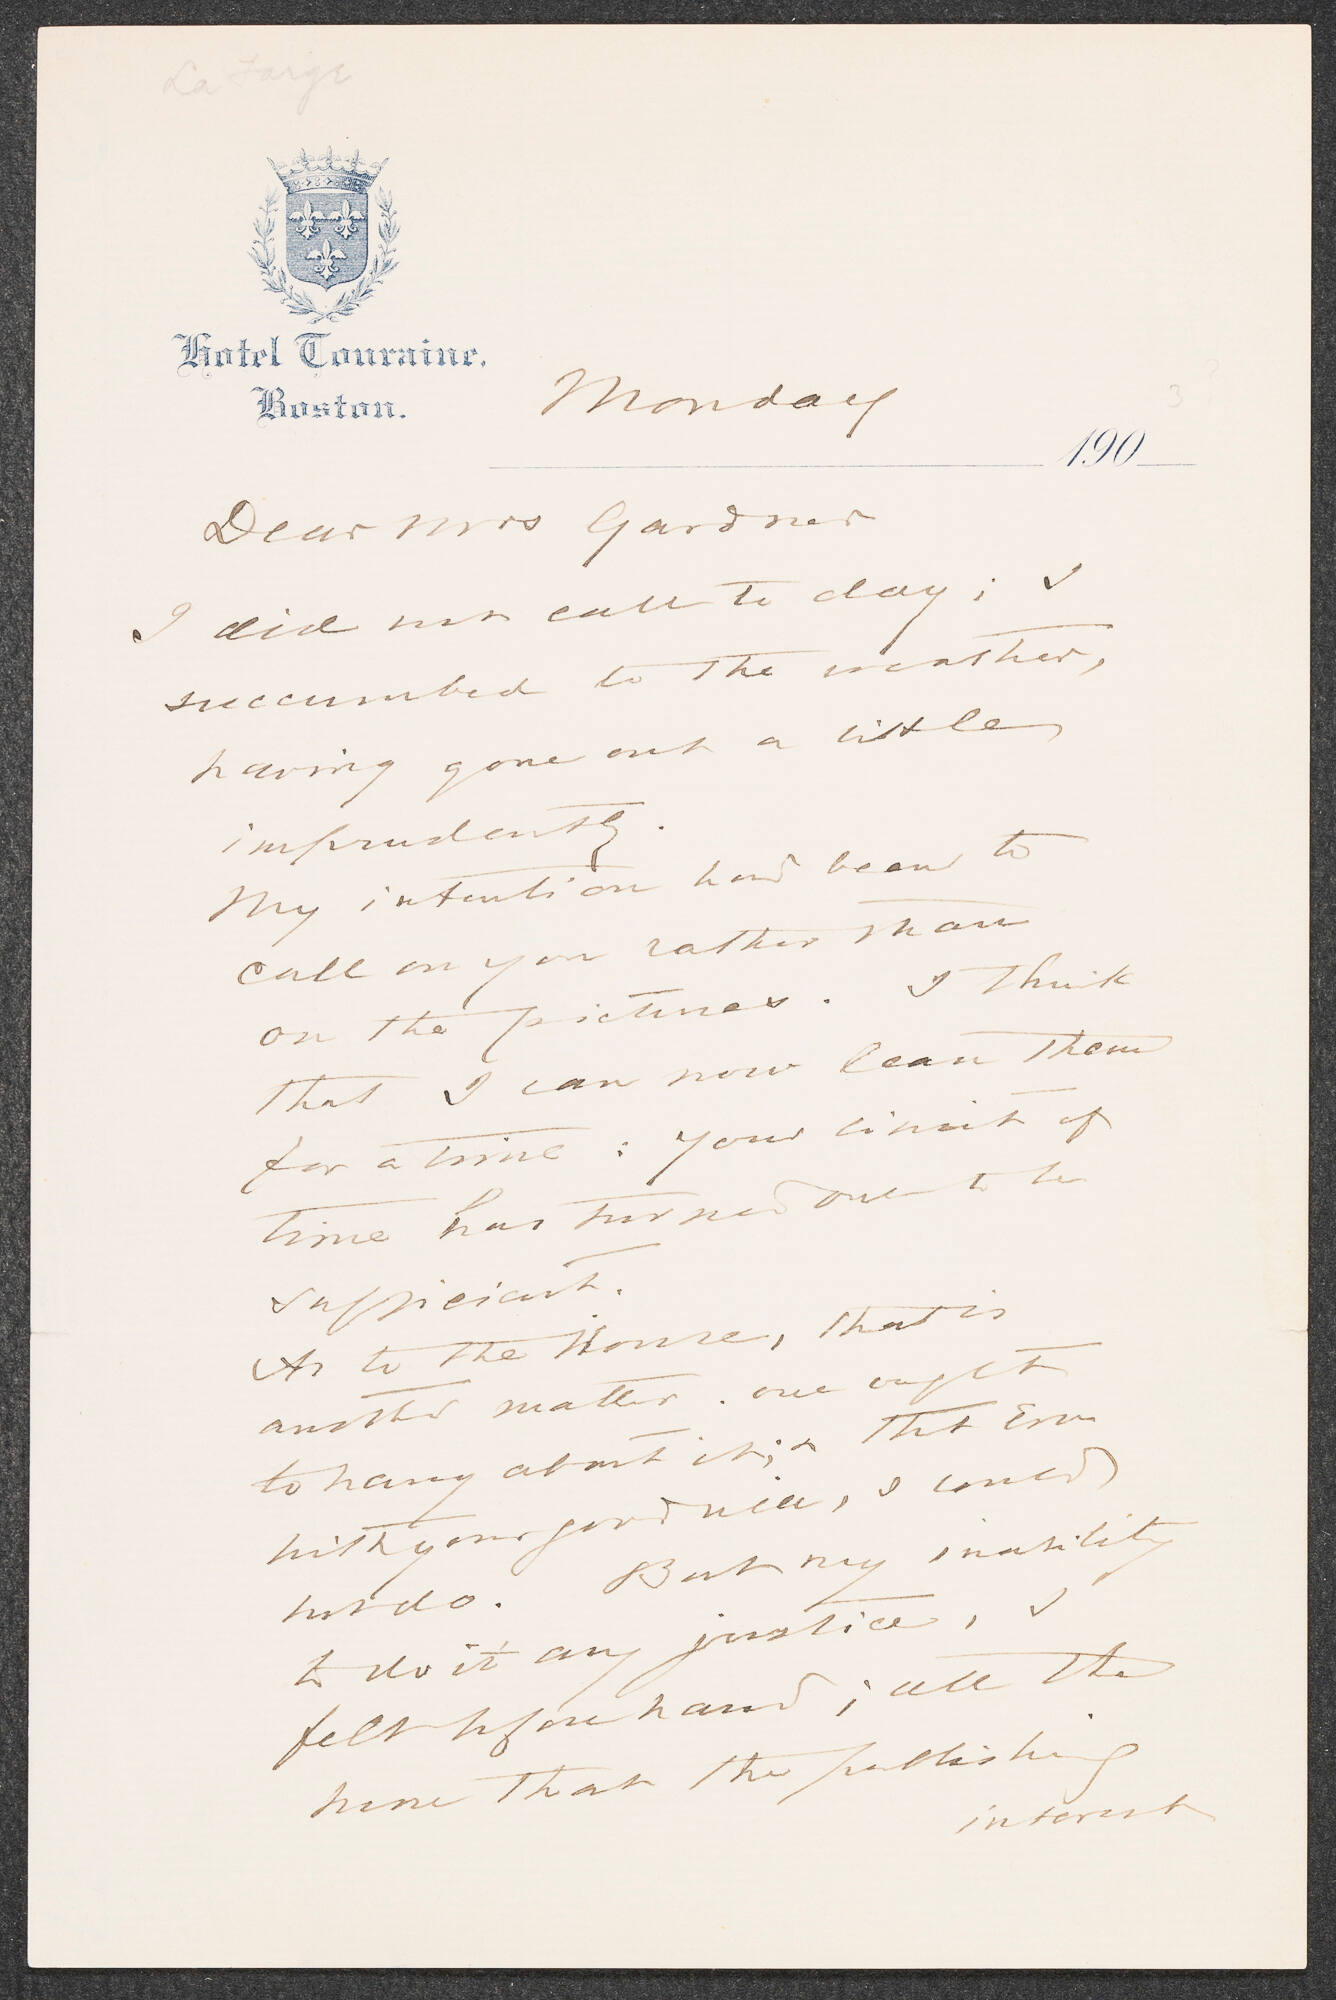 La Farge
Hotel Touraine.
Boston.
Monday
3?
190
Dear Mrs Gardner
I did not call to day; I
succumbed to the weather,
having gone out a little
imprudently.
My intention had been to
call on you rather than
on the pictures. I think
that I can now lean them
for a time: Your limit of
time has turned out to be
sufficient.
As to the House, that is
another matter. one ought
to hang about it; & that Even
with your good will, I could
not do. But my inability
to do it any justice, I
felt beforehand; all the
more that the publishing
interest